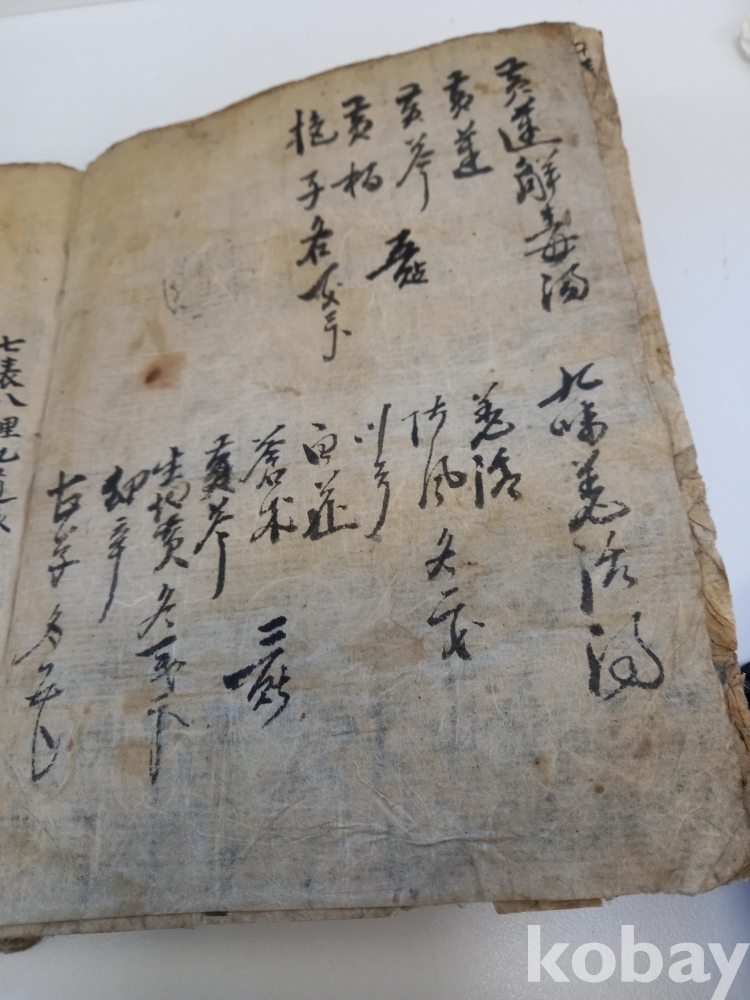 黃連解毒湯
黃連
黃芩
五貼
黃柏
梔子各
九味羌活湯
羌活
防風各一戔
川芎
白芷
蒼朮
三貼
黃芩
生地黃各
細辛
甘草各五卜
七表八裡九道
kobay